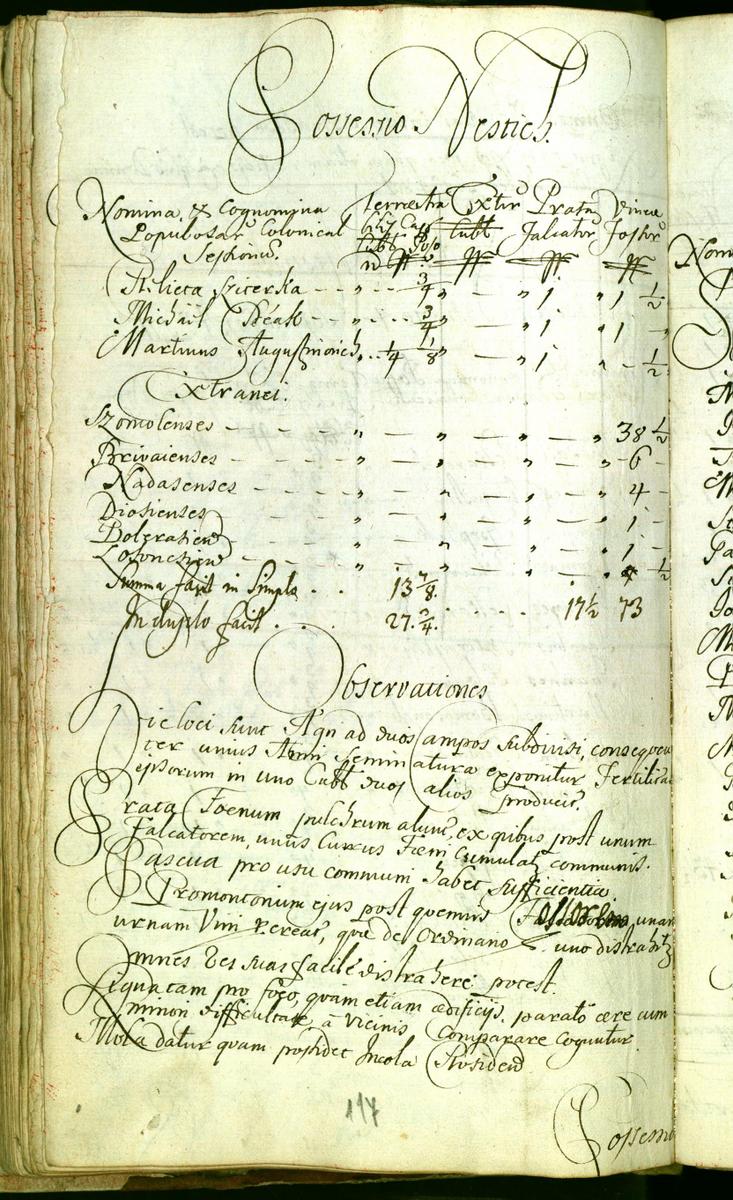 Possessio Nestich.
Nomina, & Cognomina Terrestria Extir. Prata Vineae
Populosar. Colonical Cubb. Falcator. Fossor.
Sessionu.
Relicta Sziterka - - " - - 3/4 " - " 1 " 1 1/2
Michäel Deák - - " - - 3/4 " - " 1 " 1 "
Martinus Augustinovich . . 1/4 1/8 " - " 1 " - 1/2
Extranei.
Szomolenses - - " - " - " - " 38 1/2
Brivaienses - - " - " - " - " 6 -
Nadasenses - - - " - " - " - " 4 -
Diosienses - - - " - " - " - " 1 -
Bolerasien - - " - " - " - " 1 -
Losonczien - - " - " - " - " 1/2
Summa facit in Simplo . . 13 7/8.
In duplo facit . . . 27. 3/4. . . . 17 1/2 73
Observationes
Hic loci sunt Agri ad duos Campos subdivisi, conseque
ter unius Anni seminatura exponitur Fertilitas
ipsorum in uno Cubb. duos alios producit.
Prata Foenum pulchrum alunt, ex quibus post unum
Falcatorem, unus Currus Foeni cumulat. communis.
Pascua pro usu communi habet sufficientia
Promontorium ejus post quemvis unam
urnam Vini procreat, quae de Ordinario f. uno distrahit
Omnes Res suas facilè distrahere potest.
Ligna tam pro foco, quàm etiam aedificijs, parato aere cum
minori difficultate à Vicinis Comparare coguntur.
Mola datur quam possidet Incola
117
Possessio